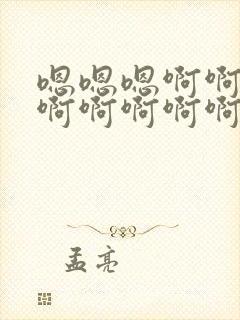 嗯嗯嗯啊啊
啊啊啊啊啊
孟亮